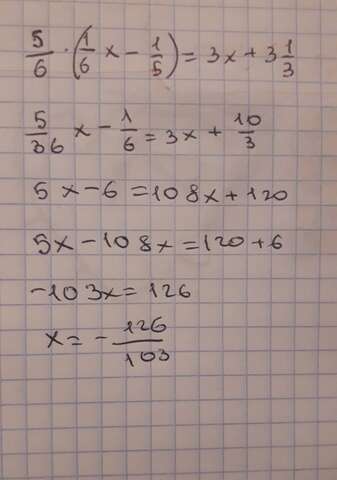 5/6 · (1/6 x - 1/5) = 3x + 3 1/3
5/36 x - 1/6 = 3x + 10/3
5x - 6 = 108x + 120
5x - 108x = 120 + 6
-103x = 126
x = - 126/103